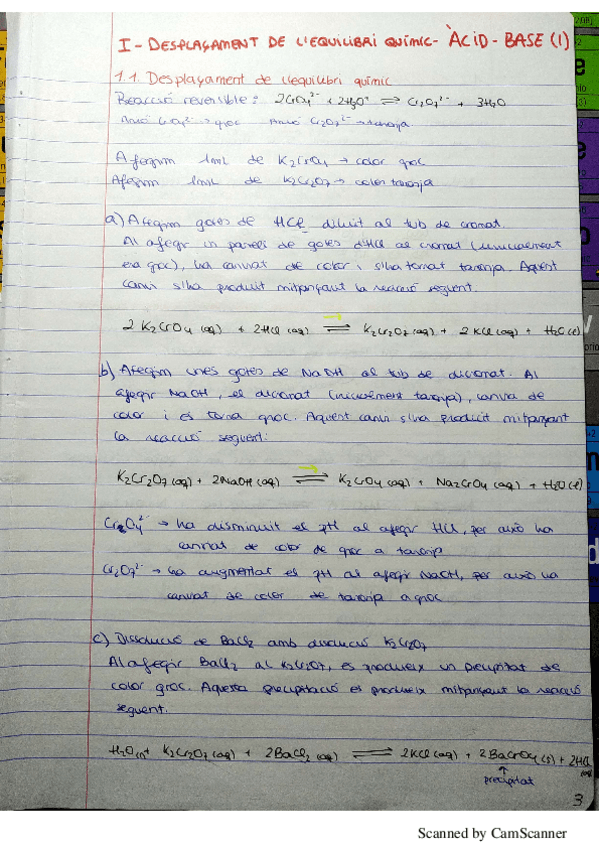 I - DESPLAÇAMENT DE L'EQUILIBRI QUÍMIC - ÀCID - BASE (1)
1.1. Desplaçament de l'equilibri químic
Reacció reversible: 2CrO₄²⁻ + 2H₃O⁺ ⇌ Cr₂O₇²⁻ + 3H₂O
Anió CrO₄²⁻ → groc Anió Cr₂O₇²⁻ → taronja
Afegim 1mL de K₂CrO₄ → color groc
Afegim 1mL de K₂Cr₂O₇ → color taronja
a) Afegim gotes de HCl diluït al tub de cromat.
Al afegir un parell de gotes d'HCl al cromat (inicialment
era groc), ha canviat de color i s'ha tornat taronja. Aquest
canvi s'ha produït mitjançant la reacció següent.
2 K₂CrO₄ (aq) + 2HCl (aq) ⇌ K₂Cr₂O₇ (aq) + 2 KCl (aq) + H₂O (l)
b) Afegim unes gotes de NaOH al tub de dicromat. Al
afegir NaOH, el dicromat (inicialment taronja), canvia de
color i es torna groc. Aquest canvi s'ha produït mitjançant
la reacció següent:
K₂Cr₂O₇ (aq) + 2NaOH (aq) ⇌ K₂CrO₄ (aq) + Na₂CrO₄ (aq) + H₂O (l)
→ ha disminuit el pH al afegir HCl, per això ha
canviat de color de groc a taronja
Cr₂O₇²⁻ → ha augmentat el pH al afegir NaOH, per això ha
canviat de color de taronja a groc
c) Dissolució de BaCl₂ amb dissolució K₂Cr₂O₇
Al afegir BaCl₂ al K₂Cr₂O₇, es produeix un precipitat de
color groc. Aquesta precipitació es produeix mitjançant la reacció
següent.
H₂O (l) + K₂Cr₂O₇ (aq) + 2BaCl₂ (aq) ⇌ 2KCl (aq) + 2BaCrO₄ (s) + 2HCl (aq)
↑
precipitat
3
Scanned by CamScanner